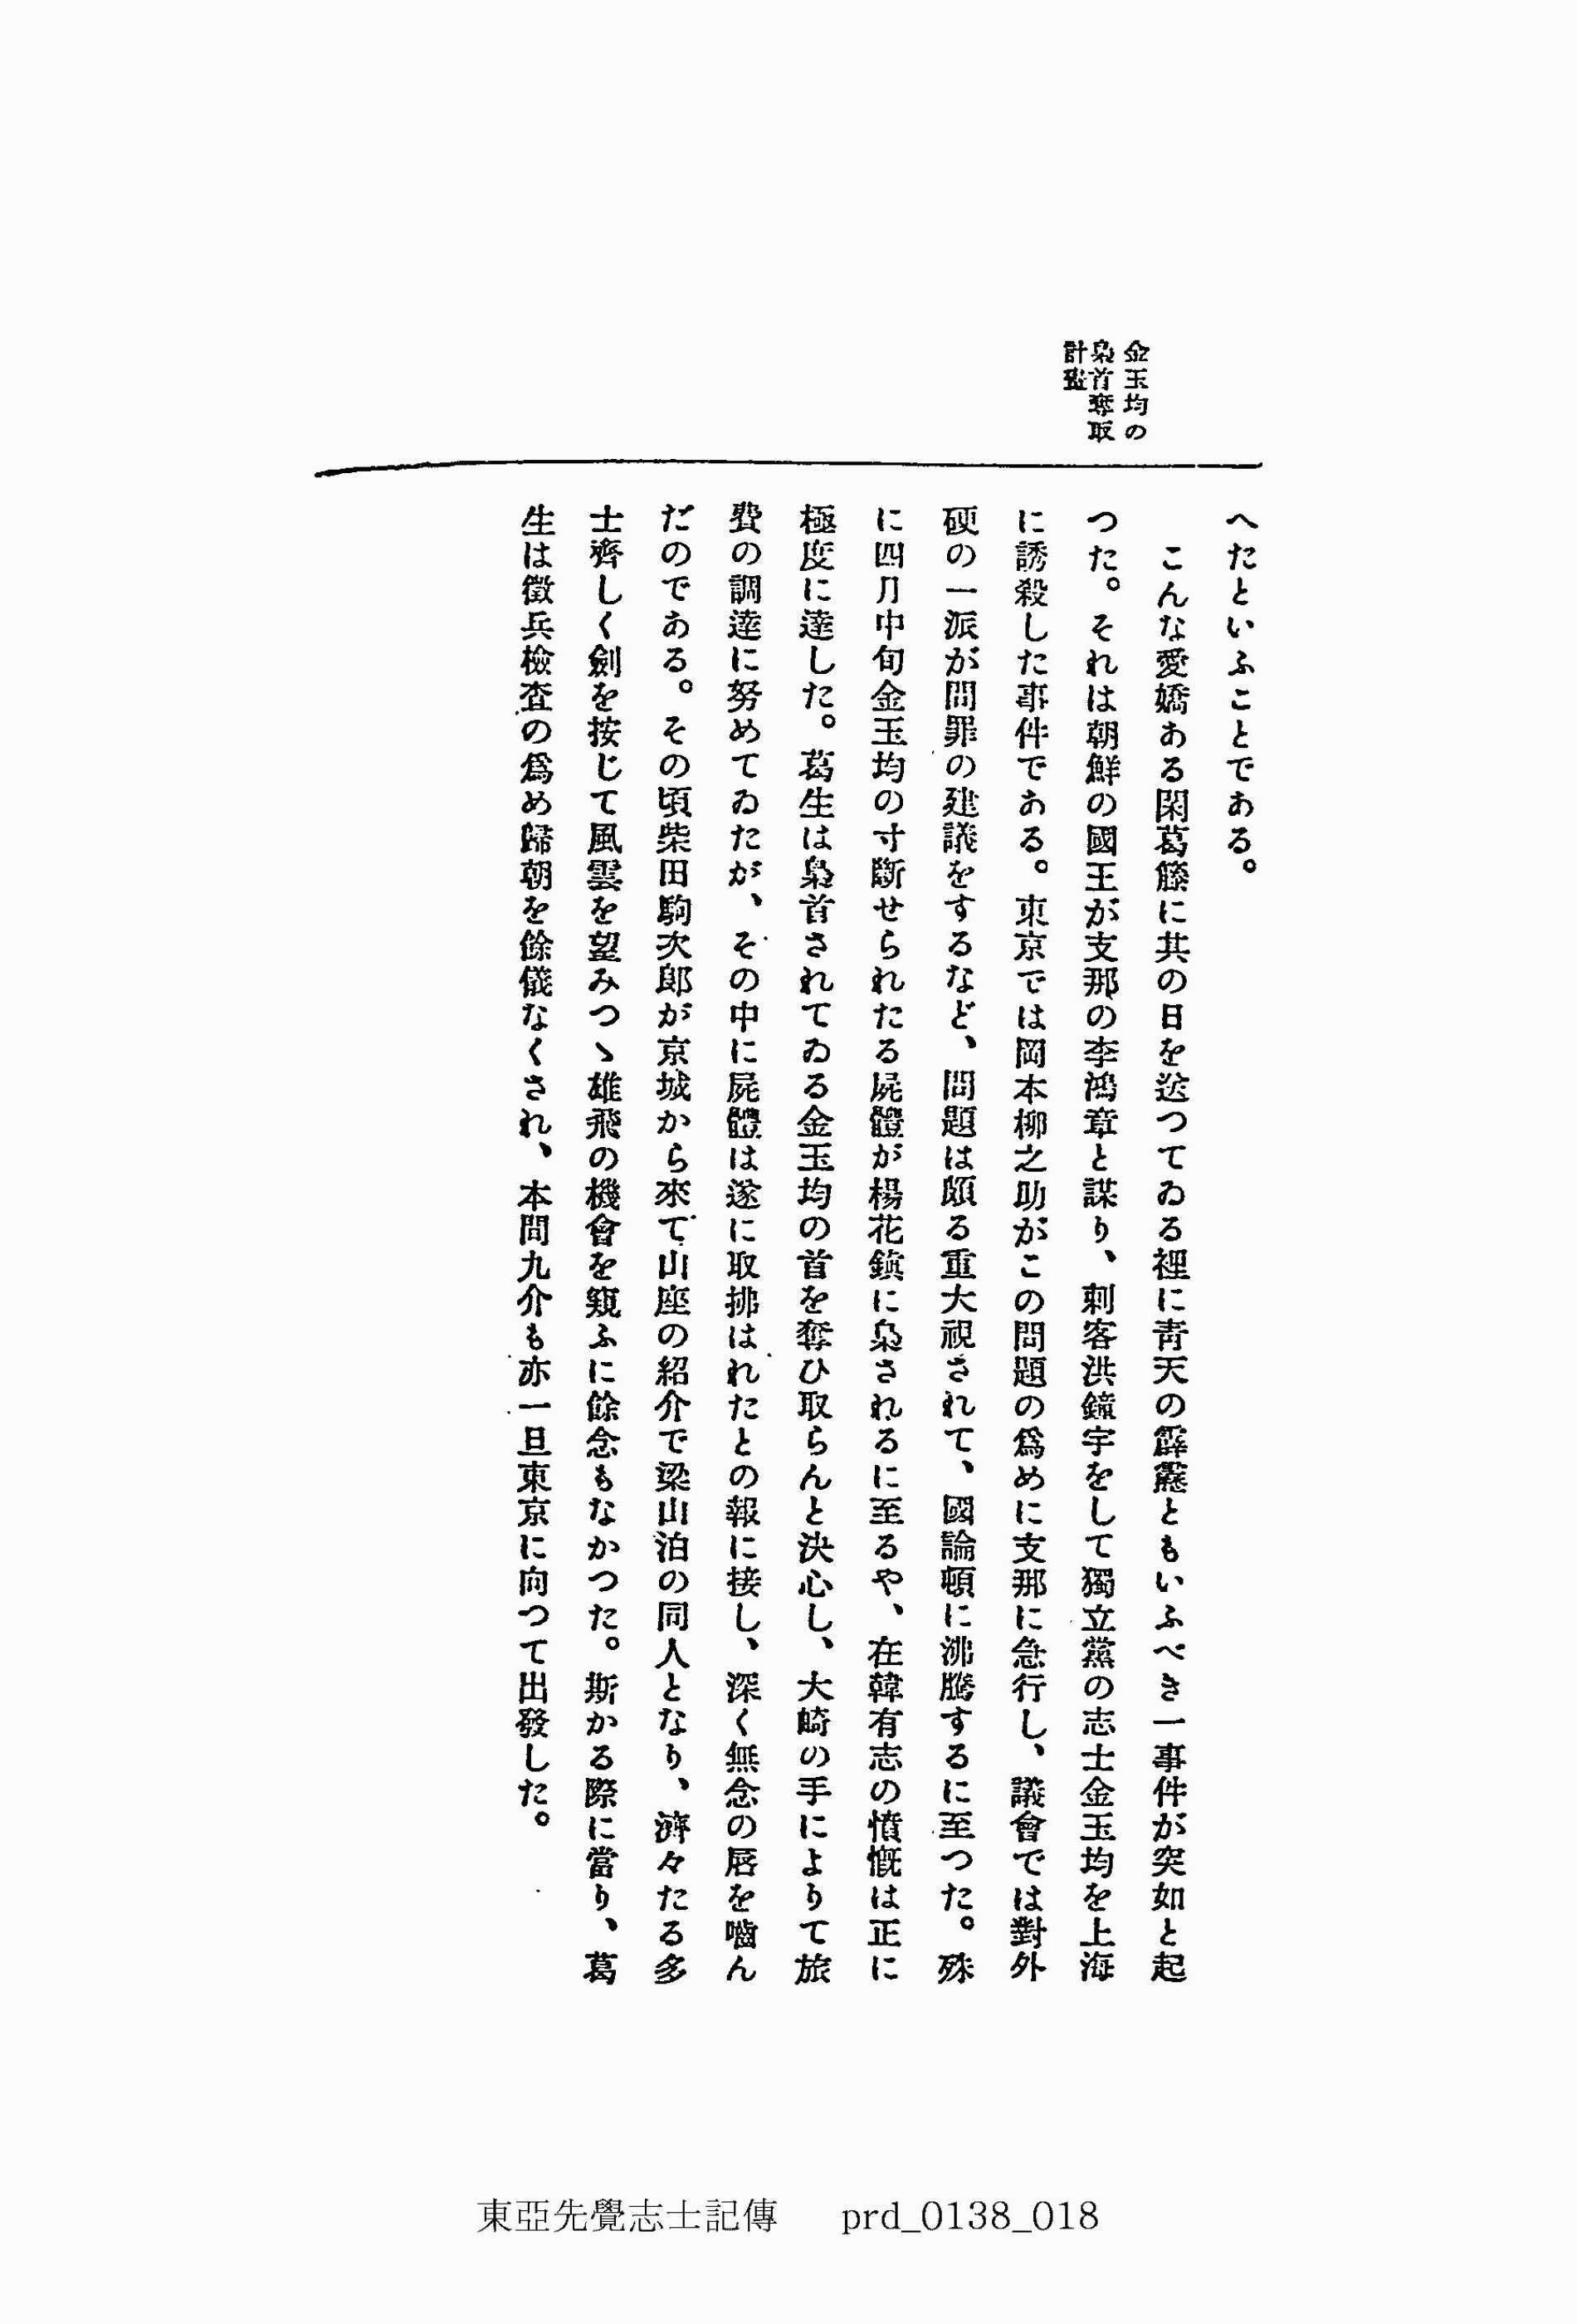 金玉均の
梟首奪取
計畫
へたといふことである。
こんな愛嬌ある閑葛籐に共の日を送つてゐる裡に靑天の霹靂ともいふべき一事件が突如と起
つた。それは朝鮮の國王が支那の李鴻章と謀り、刺客洪鐘宇をして獨立黨の志士金玉均を上海
に誘殺した事件である。東京では岡本柳之助がこの問題の爲めに支那に急行し、議會では對外
硬の一派が問罪の建議をするなど、問題は頗る重大視されて、國論頓に沸騰するに至つた。殊
に四月中旬金玉均の寸斷せられたる屍體が楊花鎭に梟されるに至るや、在韓有志の憤慨は正に
極度に達した。葛生は梟首されてゐる金玉均の首を奪ひ取らんと決心し、大崎の手によりて旅
費の調達に努めてゐたが、その中に屍體は遂に取拂はれたとの報に接し、深く無念の唇を嚙ん
だのである。その頃柴田駒次郞が京城から來て山座の紹介で梁山泊の同人となり、濟々たる多
士齊しく劍を按じて風雲を望みつゝ雄飛の機會を窺ふに餘念もなかつた。斯かる際に當り、葛
生は徵兵檢査の爲め歸朝を餘儀なくされ、本間九介も亦一旦東京に向つて出發した。
東亞先覺志士記傳 prd_0138_018